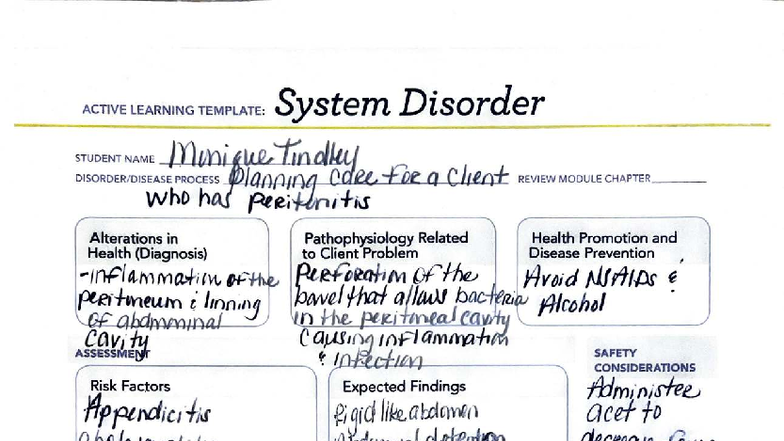 ACTIVE LEARNING TEMPLATE: System Disorder
STUDENT NAME Monique Tindley
DISORDER/DISEASE PROCESS Planning Care For a Client REVIEW MODULE CHAPTER
who has peritonitis
Alterations in
Health (Diagnosis)
-inflammation of the
peritoneum & linning
of abdmninal
cavity
Pathophysiology Related
to Client Problem
Perforation of the
bowel that allows bacteria
in the peritoneal cavity
causing inflammation
& infection
Health Promotion and
Disease Prevention
Avoid NSAIDs &
Alcohol
ASSESSMENT
SAFETY
CONSIDERATIONS
Risk Factors
Appendicitis
Expected Findings
Rigid like abdomen
Administer
acet to